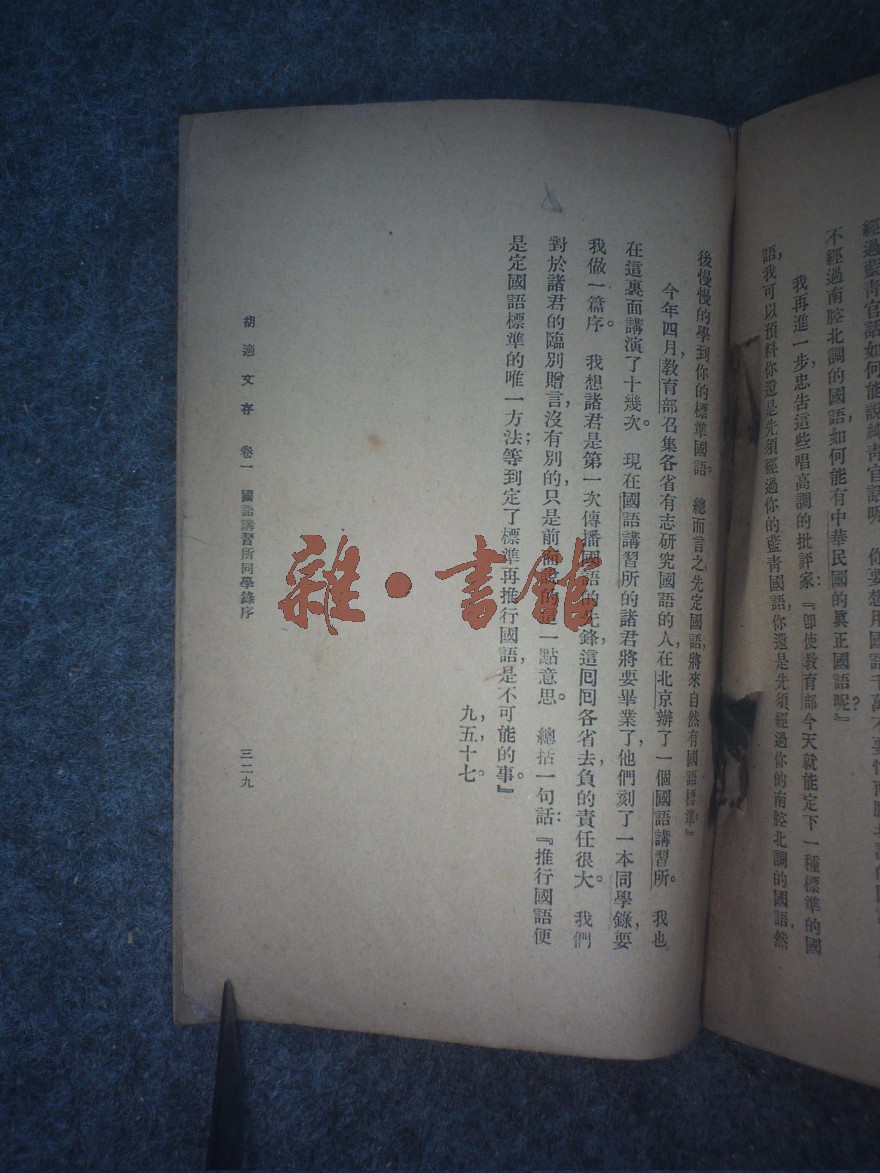 經過藍青官話如何能說純青官話呢
不經過南腔北調的國語，如何能有中華民國的眞正國語呢？』
我再進一步忠告這些唱高調的批評家：『卽使教育部今天就能定下一種標準的國
語，我可以預料你還是先須經過你的藍青國語，你還是先須經過你的南腔北調的國語，然
後慢慢的學到你的標準國語。　總而言之，先定國語，將來自然有國語標準』
今年四月，教育部召集各省有志研究國語的人，在北京辦了一個國語講習所。　我也
在這裏面講演了十幾次。　現在國語講習所的諸君將要畢業了，他們刻了一本同學錄，要
我做一篇序。　我想諸君是第一次傳播國語的先鋒，這囘囘各省去負的責任很大。　我們
對於諸君的臨別贈言，沒有別的，只是前面說的這一點意思。　總括一句話：『推行國語便
是定國語標準的唯一方法；等到定了標準再推行國語，是不可能的事。』
九，五，十七。
胡適文存　卷一　國語講習所同學錄序　三二九
雜·書館